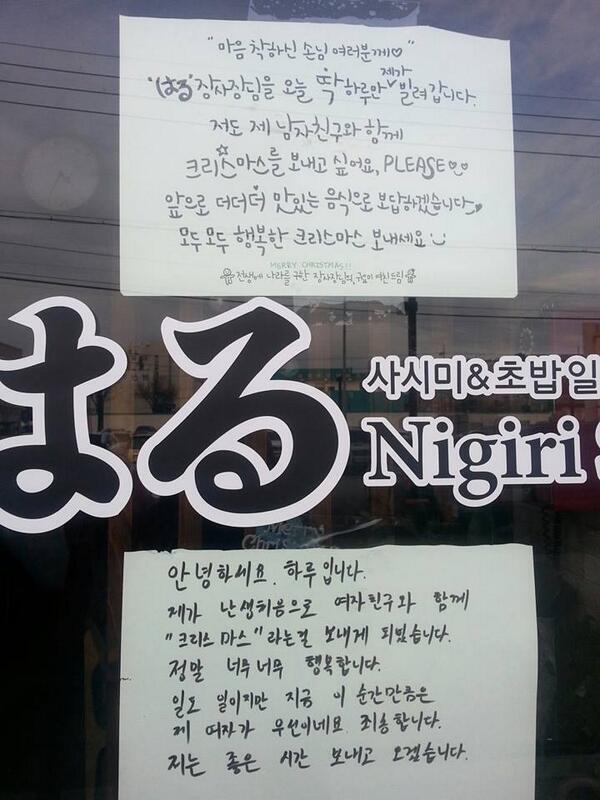 "마음 착하신 손님 여러분께♡"
'はる' 장사장님을 오늘 딱 하루만 제가 빌려갑니다.
저도 제 남자친구와 함께
크리스마스를 보내고 싶어요, PLEASE
앞으로 더더더 맛있는 음식으로 보답하겠습니다
모두모두 행복한 크리스마스 보내세요
MERRY CHRISTMAS!!
전생에 나라를 구한 장사장님의, 귀요미 여친드림
はる
사시미&초밥 일
Nigiri
Merry
안녕하세요. 하루입니다.
제가 난생처음으로 여자친구와 함께
"크리스마스"라는걸 보내게 되었습니다.
정말 너무너무 행복합니다.
일도 일이지만 지금 이 순간만큼은
제 여자가 우선이네요. 죄송합니다.
저는 좋은 시간 보내고 오겠습니다.